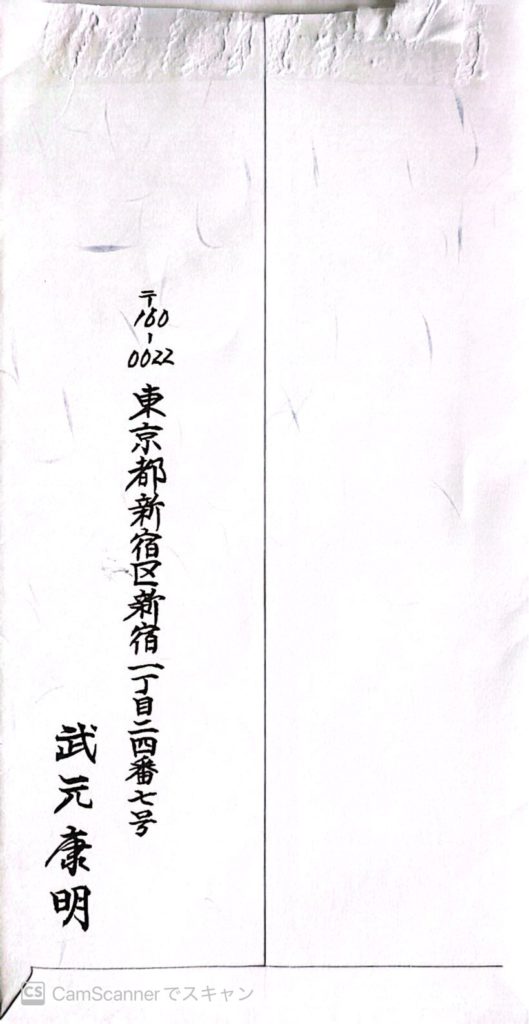 〒
160
-
0022
東京都新宿区新宿一丁目二四番七号
武元康明
CS CamScannerでスキャン